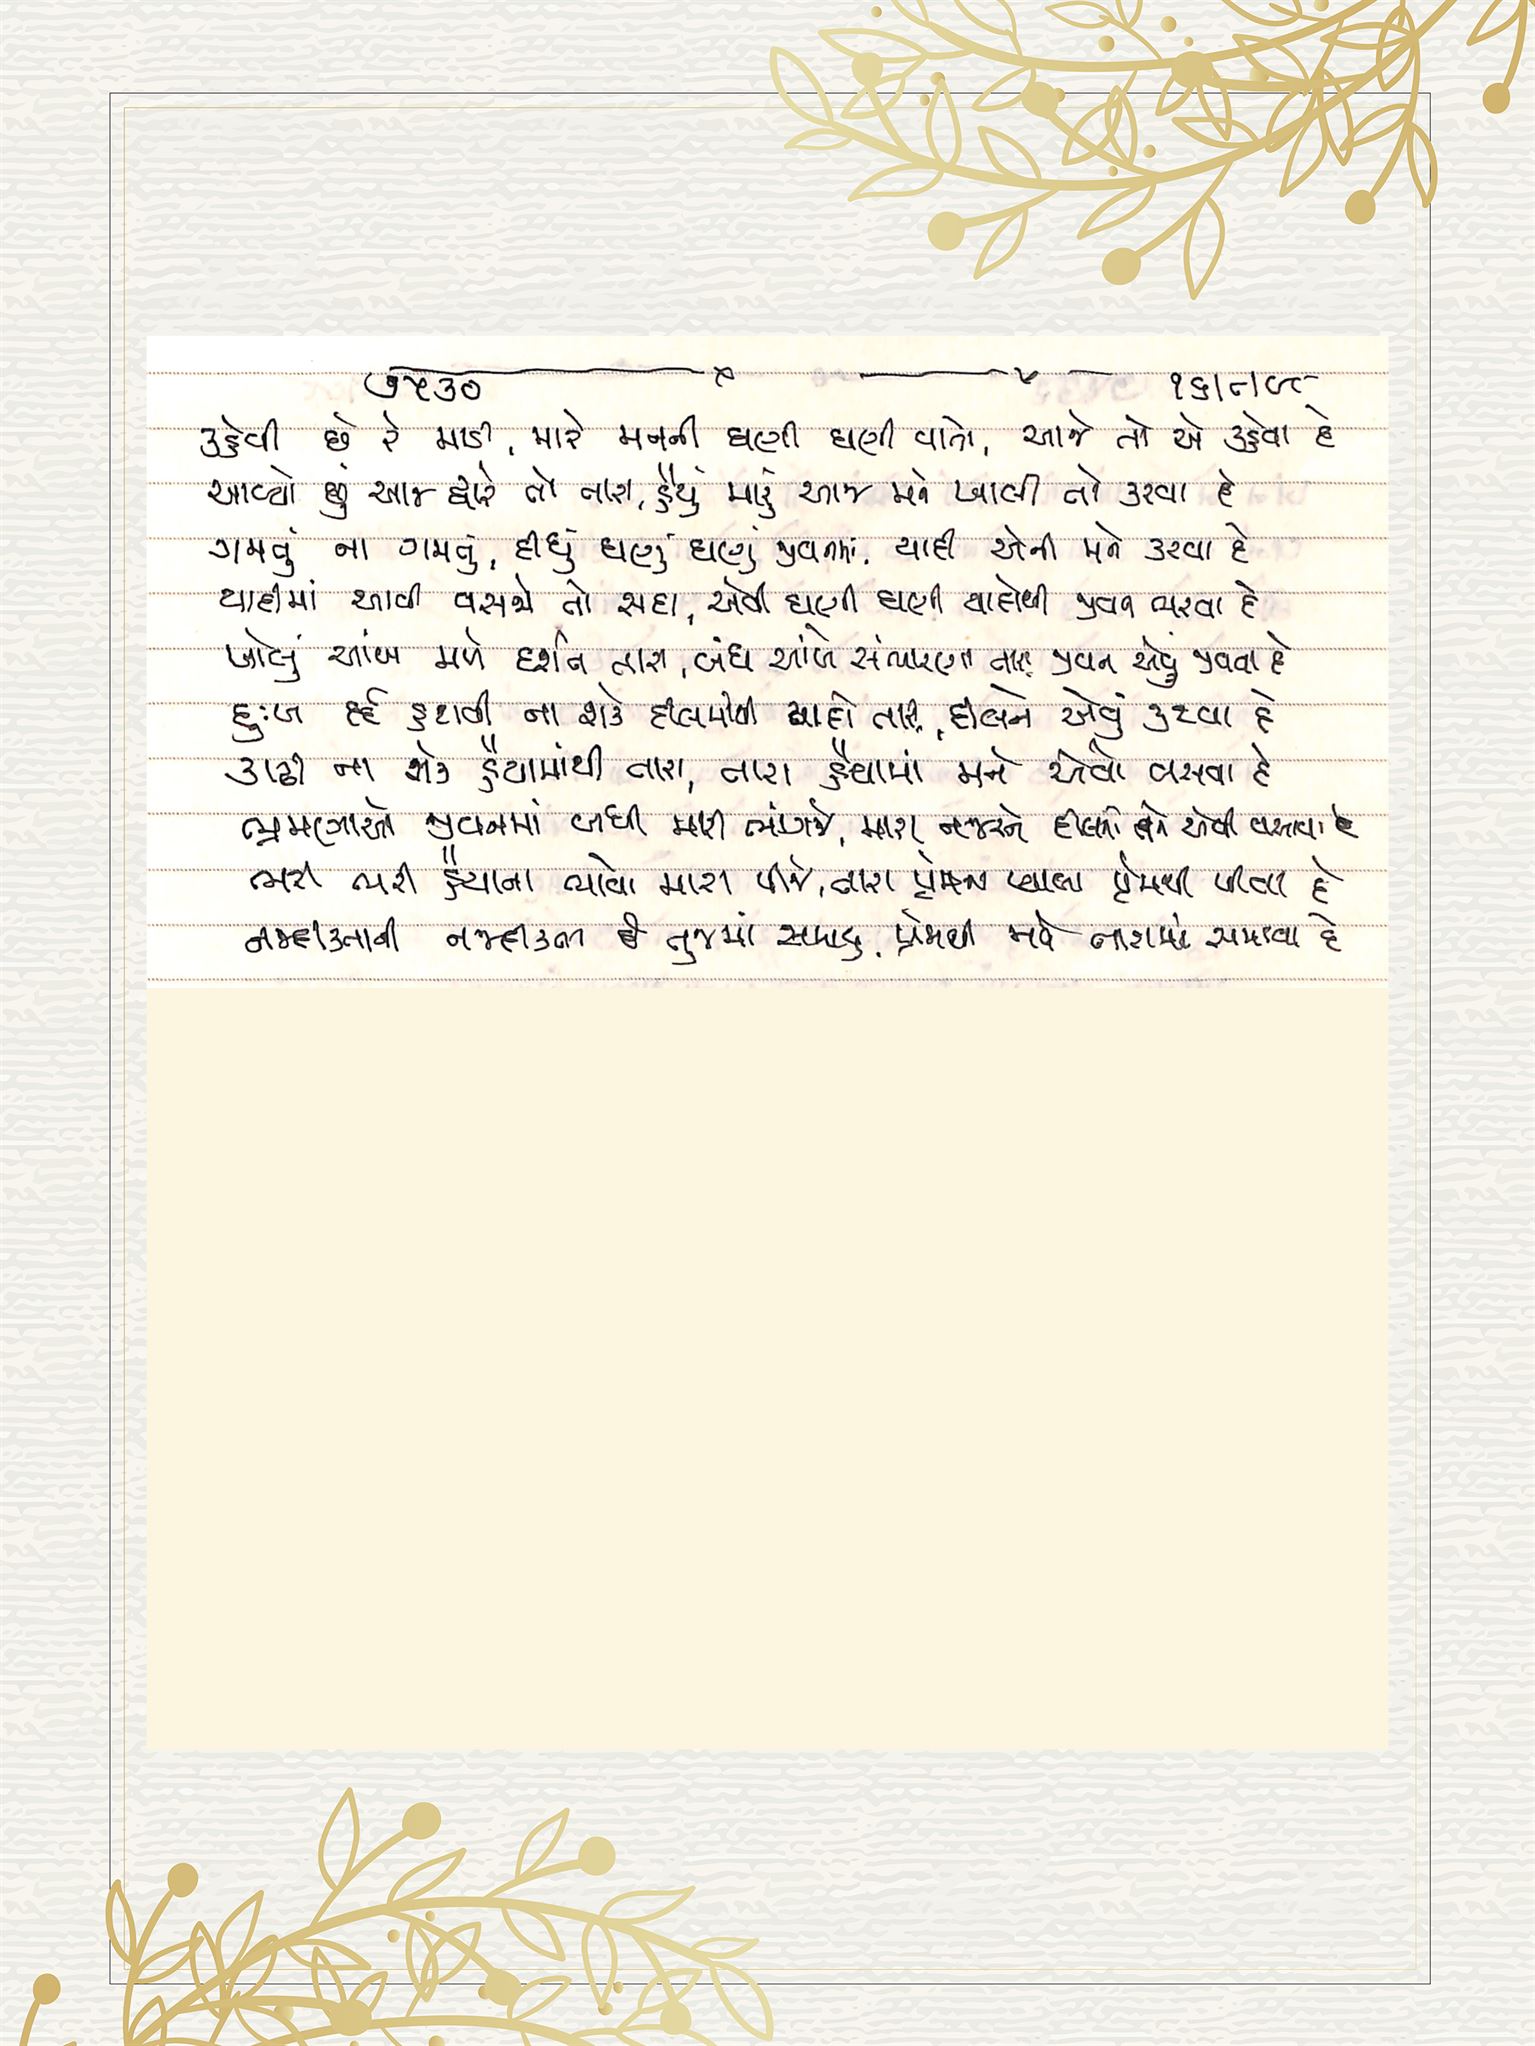 ૭૫૩૦ ૧૬/૮/૯૮
કહેવી છે રે માડી, મારે મનની ઘણી ઘણી વાતો, આજે તો એ કહેવા દે
આવ્યો છું આજ દ્વારે તો તારા, હૈયું મારું આજ મને ખાલી તો કરવા દે
ગમવું ના ગમવું, દીધું ઘણું ઘણું જીવનમાં, યાદી એની મને કરવા દે
યાદીમાં આવી વસજે તો સદા, એવી ઘણી ઘણી યાદોથી જીવન ભરવા દે
ખોલું આંખ મળે દર્શન તારા, બંધ આંખે સંભારણા તારા જીવન એવું જીવવા દે
દુઃખ દર્દ હટાવી ના શકે દીલમાંથી યાદો તારી, દીલને એવું કરવા દે
કાઢી ના શકે હૈયામાંથી તારા, તારા હૈયામાં મને એવો વસવા દે
ભ્રમણાઓ જીવનમાં બધી મારી ભાંગજે, મારા નજરને દીલમાં તને એવી વસાવા દે
ભરી ભરી હૈયાના ભાવો મારા પીજે, તારા પ્રેમના પ્યાલા પ્રેમથી પીવા દે
નજદીકતાની નજદીકતા તુજમાં સમાઉ, પ્રેમથી મને તારામાં સમાવા દે